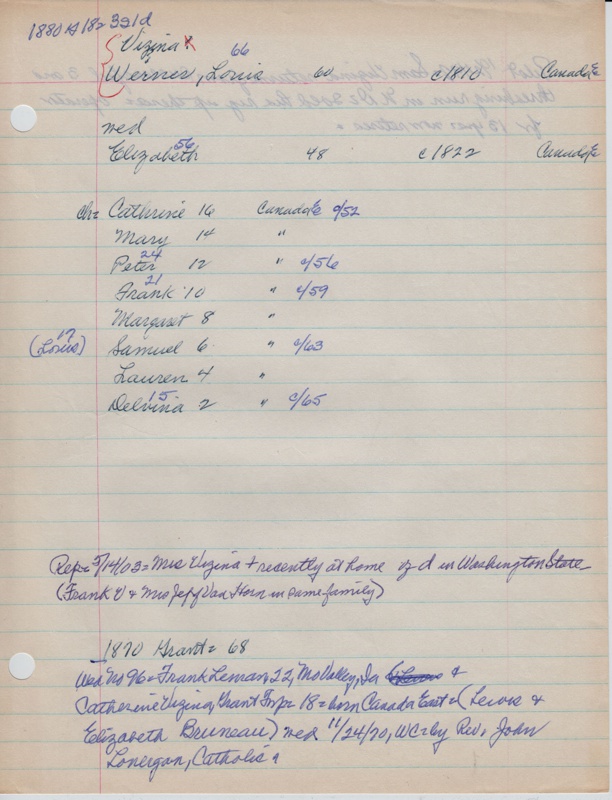 1880 G 182 331d
Vizina
66
Werner, Louis 60 c1810 Canada E
wed
56
Elizabeth 48 c1822 Canada E
ch= Cathrine 16 Canada E c/52
Mary 14 "
24
Peter 12 " c/56
21
Frank 10 " c/59
Margaret 8 "
17
(Louis) Samuel 6 " c/63
Lauren 4 "
15
Delvina 2 " c/65
Rep= 5/14/03= Mrs Vizina + recently at home of d in Washington State
(Frank V & Mrs Jeff Van Horn in same family)
1870 Grant= 68
Wed No 96= Frank Leman, 22, Mo Valley, Ia &
Catherine Vizina, Grant Twp= 18= born Canada East= (Lewis &
Elizabeth Bruneau) wed 11/24/70, WC= by Rev. John
Lonergan, Catholic